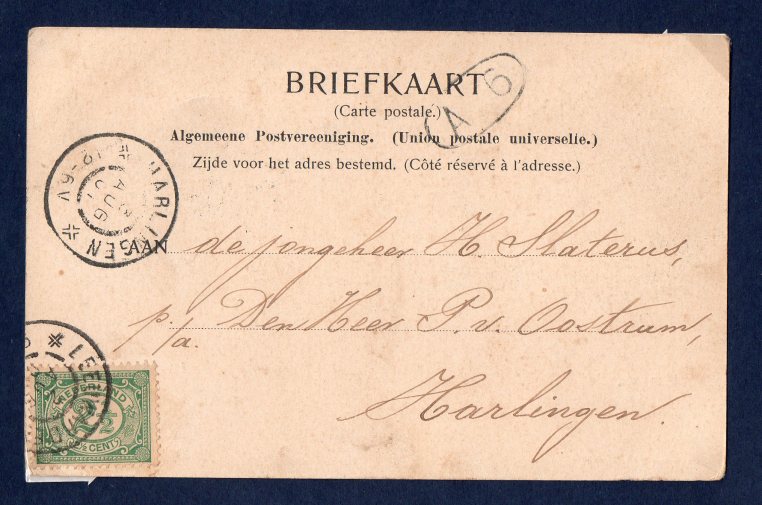 BRIEFKAART
(Carte postale.)
A 6
Algemeene Postvereeniging. (Union postale universelle.)
Zijde voor het adres bestemd. (Côté réservé à l'adresse.)
HARLINGEN
AUG
AAN de jongeheer H. Slaterus,
p/a. Den Heer P. v. Oostrum,
Harlingen.
NEDERLAND
2½
CENT